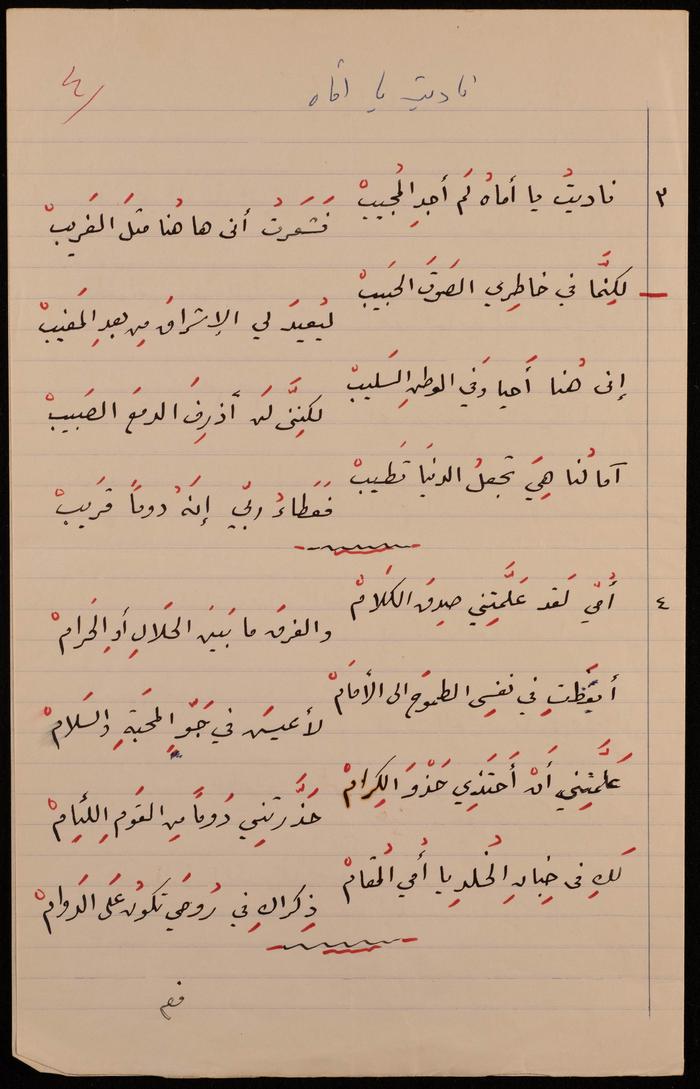 ٤/
ناديت يا أماه
٣ ناديتُ يا أماهُ لَم أجدِ المُجيبْ
فَشَعَرتُ أنى ها هُنا مثلَ الغَريبْ
لكِنَّما في خاطِري الصَوتُ الحَبيبْ
ليُعيدَ لي الإشراقَ مِن بعدِ المَغيبْ
إنى هُنا أحيا وَفي الوطنِ السَليبْ
لكِنَّنى لَن أذرِفَ الدمعَ الصَبيبْ
آمالُنا هِيَ تجعلُ الدنيَا تَطيبْ
فَعَطاءُ ربّي إنّهُ دوماً قَريبْ
٤ أُمّي لَقد عَلَّمتِني صِدقَ الكَلامْ
والفرقَ ما بَينَ الحَلالِ أوِ الحَرامْ
أيقَظتِ في نفسِى الطموحَ الى الأمَامْ
لأعيشَ في جَوِّ المحبّةِ والسَلامْ
عَلَّمتِني أنْ أَحتَذِي حَذْوَ الكِرامْ
حَذَّرتِني دَوماً مِن القَومِ اللِئامْ
لَكِ فى جِنانِ الخُلدِ يا أُمي المُقامْ
ذِكراكِ في رُوحي تكونُ عَلَى الدَوامْ